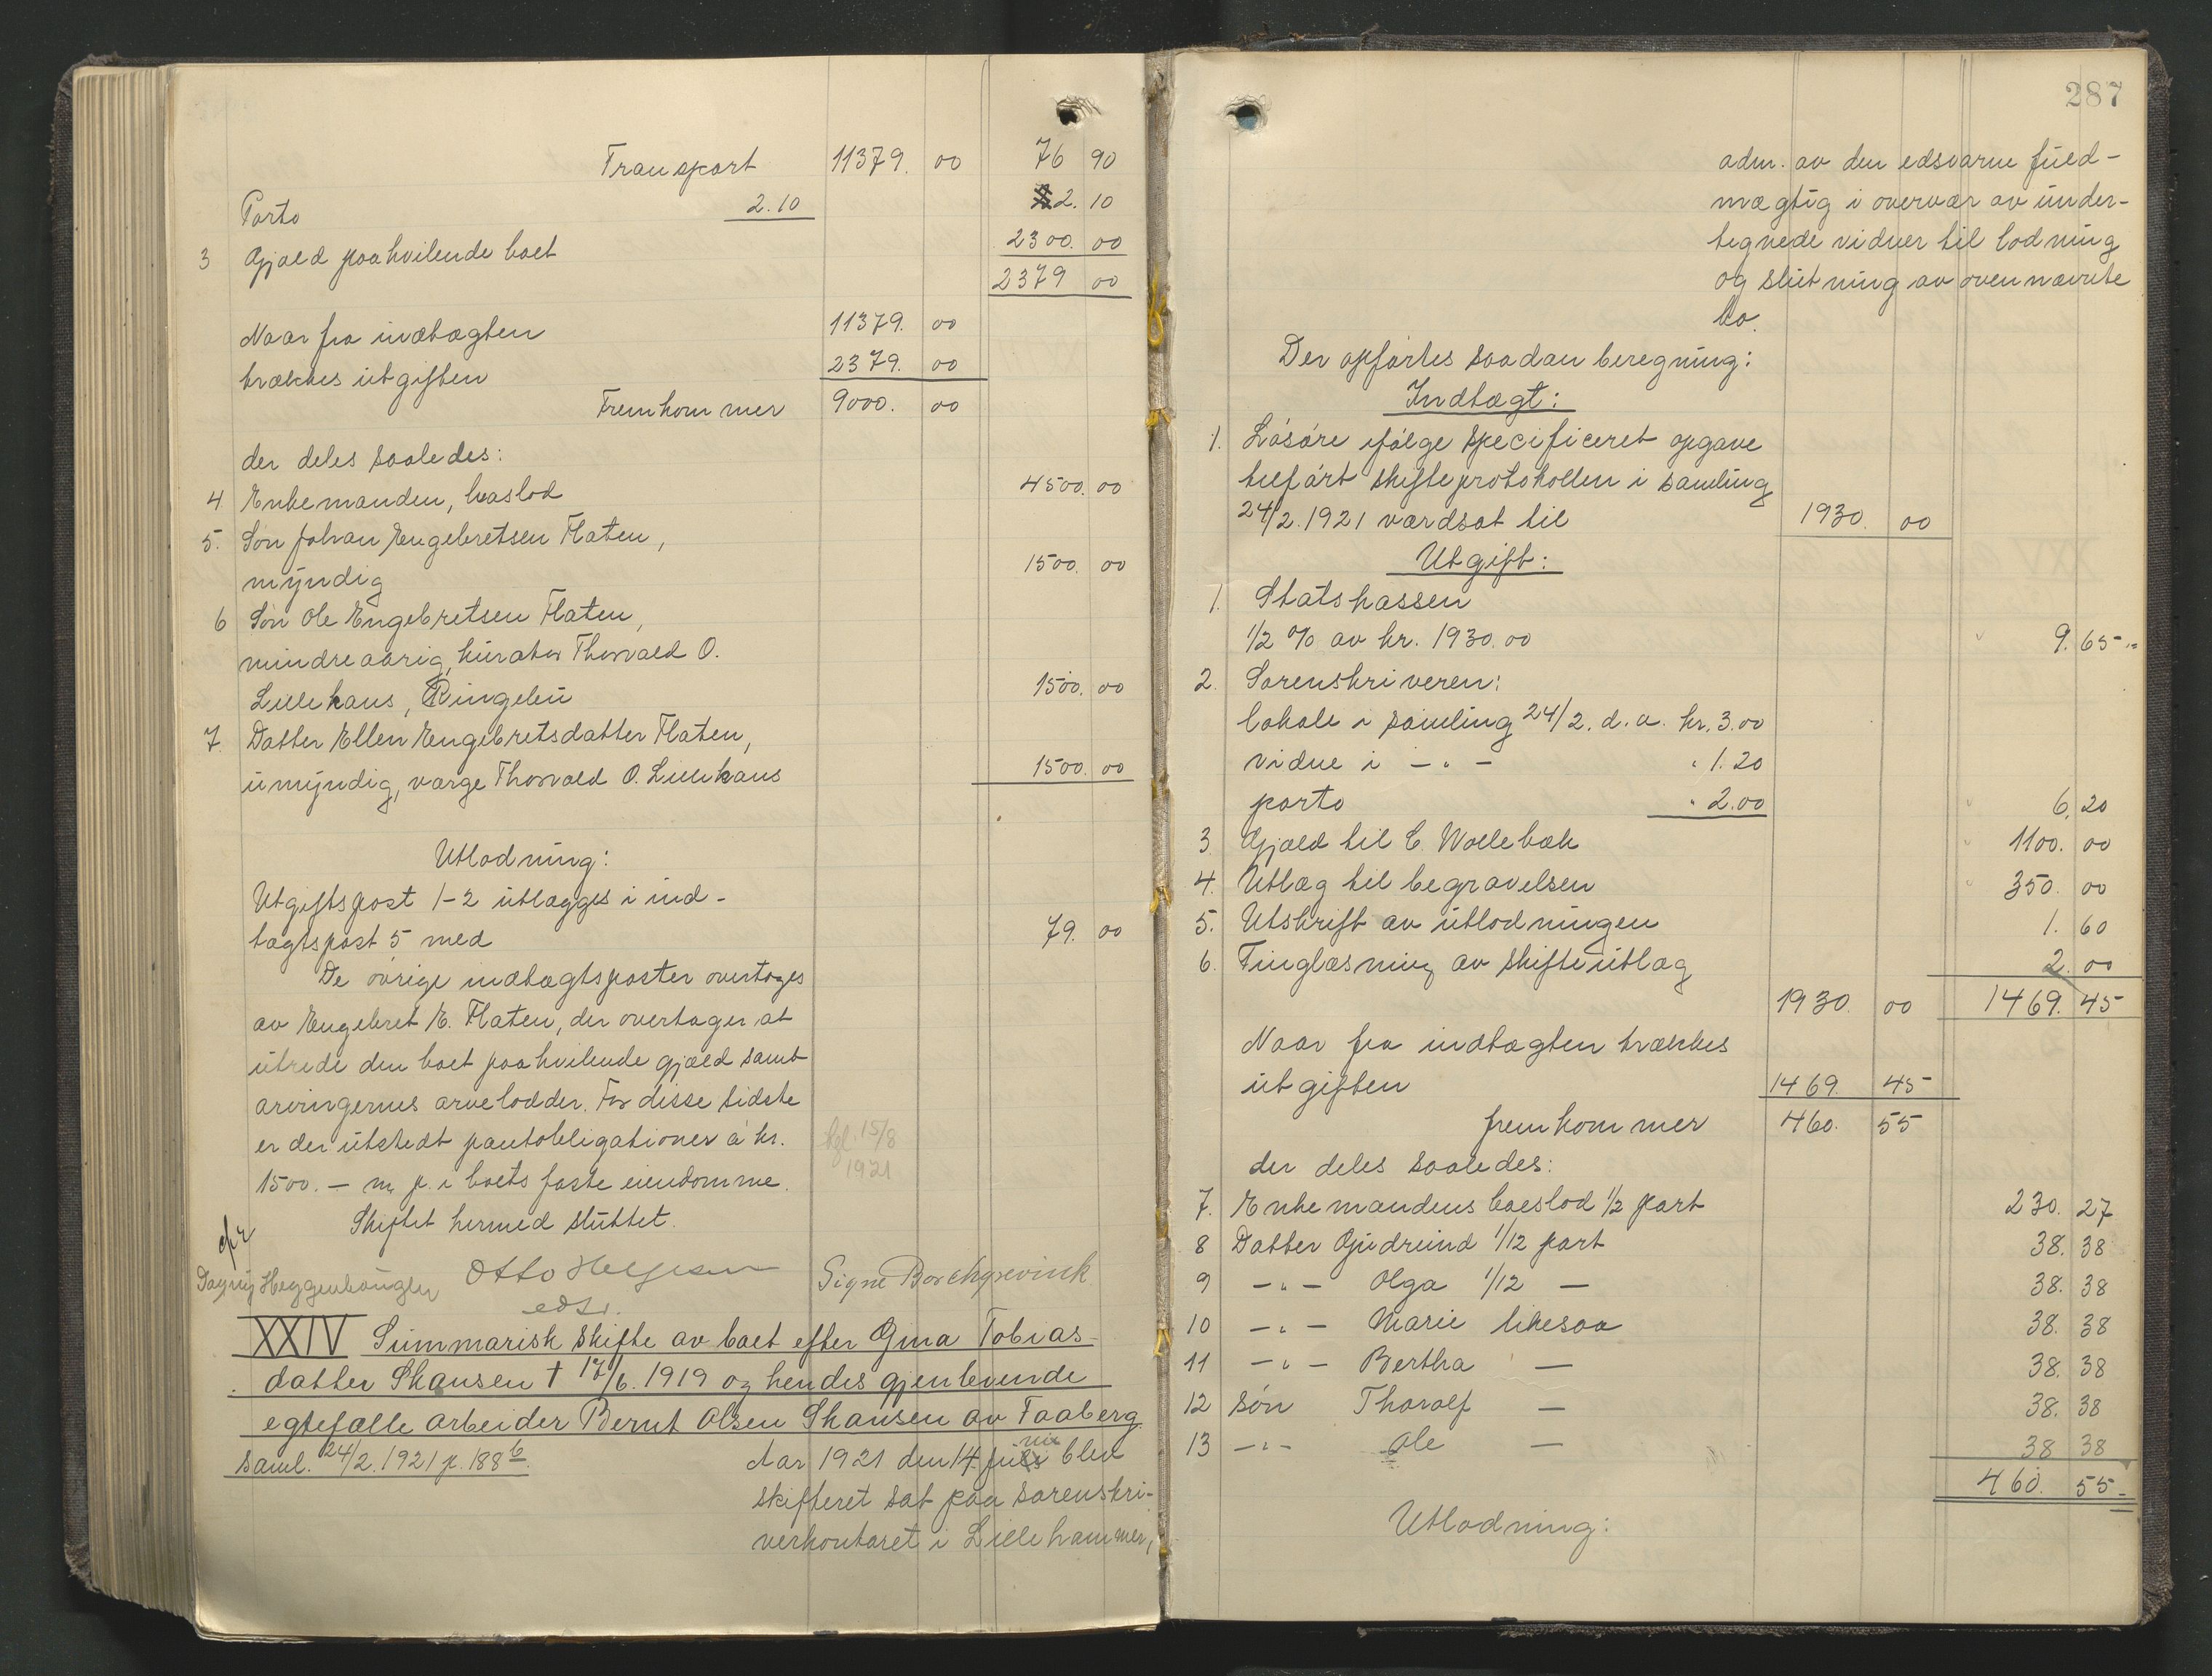 Transport 11379. 00 76 90
Porto 2.10 2. 10
3 Gjæld paahvilende boet 2300. 00
2379 00
Naar fra indtægten 11379. 00
trækkes utgiften 2379. 00
Fremkommer 9000. 00
der deles saaledes:
4 Enkemanden, boslod 4500. 00
5. Søn Johan Engebretsen Flaten,
myndig 1500. 00
6 Søn Ole Engebretsen Flaten,
mindreaarig, kurator Thorvald O.
Lillehaus, Ringebu 1500. 00
7. Datter Ellen Engebretsdatter Flaten,
umyndig, værge Thorvald O. Lillehaus 1500. 00
Utlodning:
Utgiftspost 1-2 utlægges i ind-
tægtspost 5 med 79. 00
De øvrige indtægtsposter overtages
av Engebret E. Flaten, der overtager at
utrede den boet paahvilende gjæld samt
arvingernes arvelodder. For disse sidste
er der utstedt pantobligationer á kr.
1500. — m. p. i boets faste eiendomme.
tgl. 15/8
1921
Skiftet hermed sluttet.
Otto Helgesen
edsv.
Signe Borchgrevink
XXIV Summarisk skifte av boet efter Gina Tobias-
datter Skansen † 17/6. 1919 og hendes gjenlevende
egtefælle arbeider Bernt Olsen Skansen av Faaberg
Saml. 24/2. 1921 p. 188b.
Aar 1921 den 14. juni blev
skifteret sat paa sorenskri-
verkontoret i Lillehammer,
287
adm. av den edsvorne fuld-
mægtig i overvær av under-
tegnede vidner til lodning
og slutning av ovennævnte
bo.
Der opførtes saadan beregning:
Indtægt:
1. Løsøre ifølge specificeret opgave
tilført skifteprotokollen i samling
24/2. 1921 værdsat til 1930. 00
Utgift:
1. Statskassen
1/2 % av kr. 1930.00 " 9. 65
2. Sorenskriveren:
lokale i samling 24/2. d. a. kr. 3.00
vidne i - " - " 1.20
porto " 2.00 " 6. 20
3. Gjæld til C. Wollebæk " 1100. 00
4. Utlæg til begravelsen " 350. 00
5. Utskrift av utlodningen 1. 60
6. Tinglæsning av skifteutlæg 2. 00
1930. 00 1469. 45
Naar fra indtægten trækkes
utgiften 1469. 45
fremkommer 460. 55
der deles saaledes:
7. Enkemandens boeslod 1/2 part 230. 27
8 Datter Gudrund 1/12 part 38. 38
9 - " - Olga 1/12 — 38. 38
10 - " - Marie likesaa 38. 38
11 - " - Bertha — 38. 38
12 Søn Tharalf — 38. 38
13 - " - Ole — 38 38
460. 55
Utlodning: